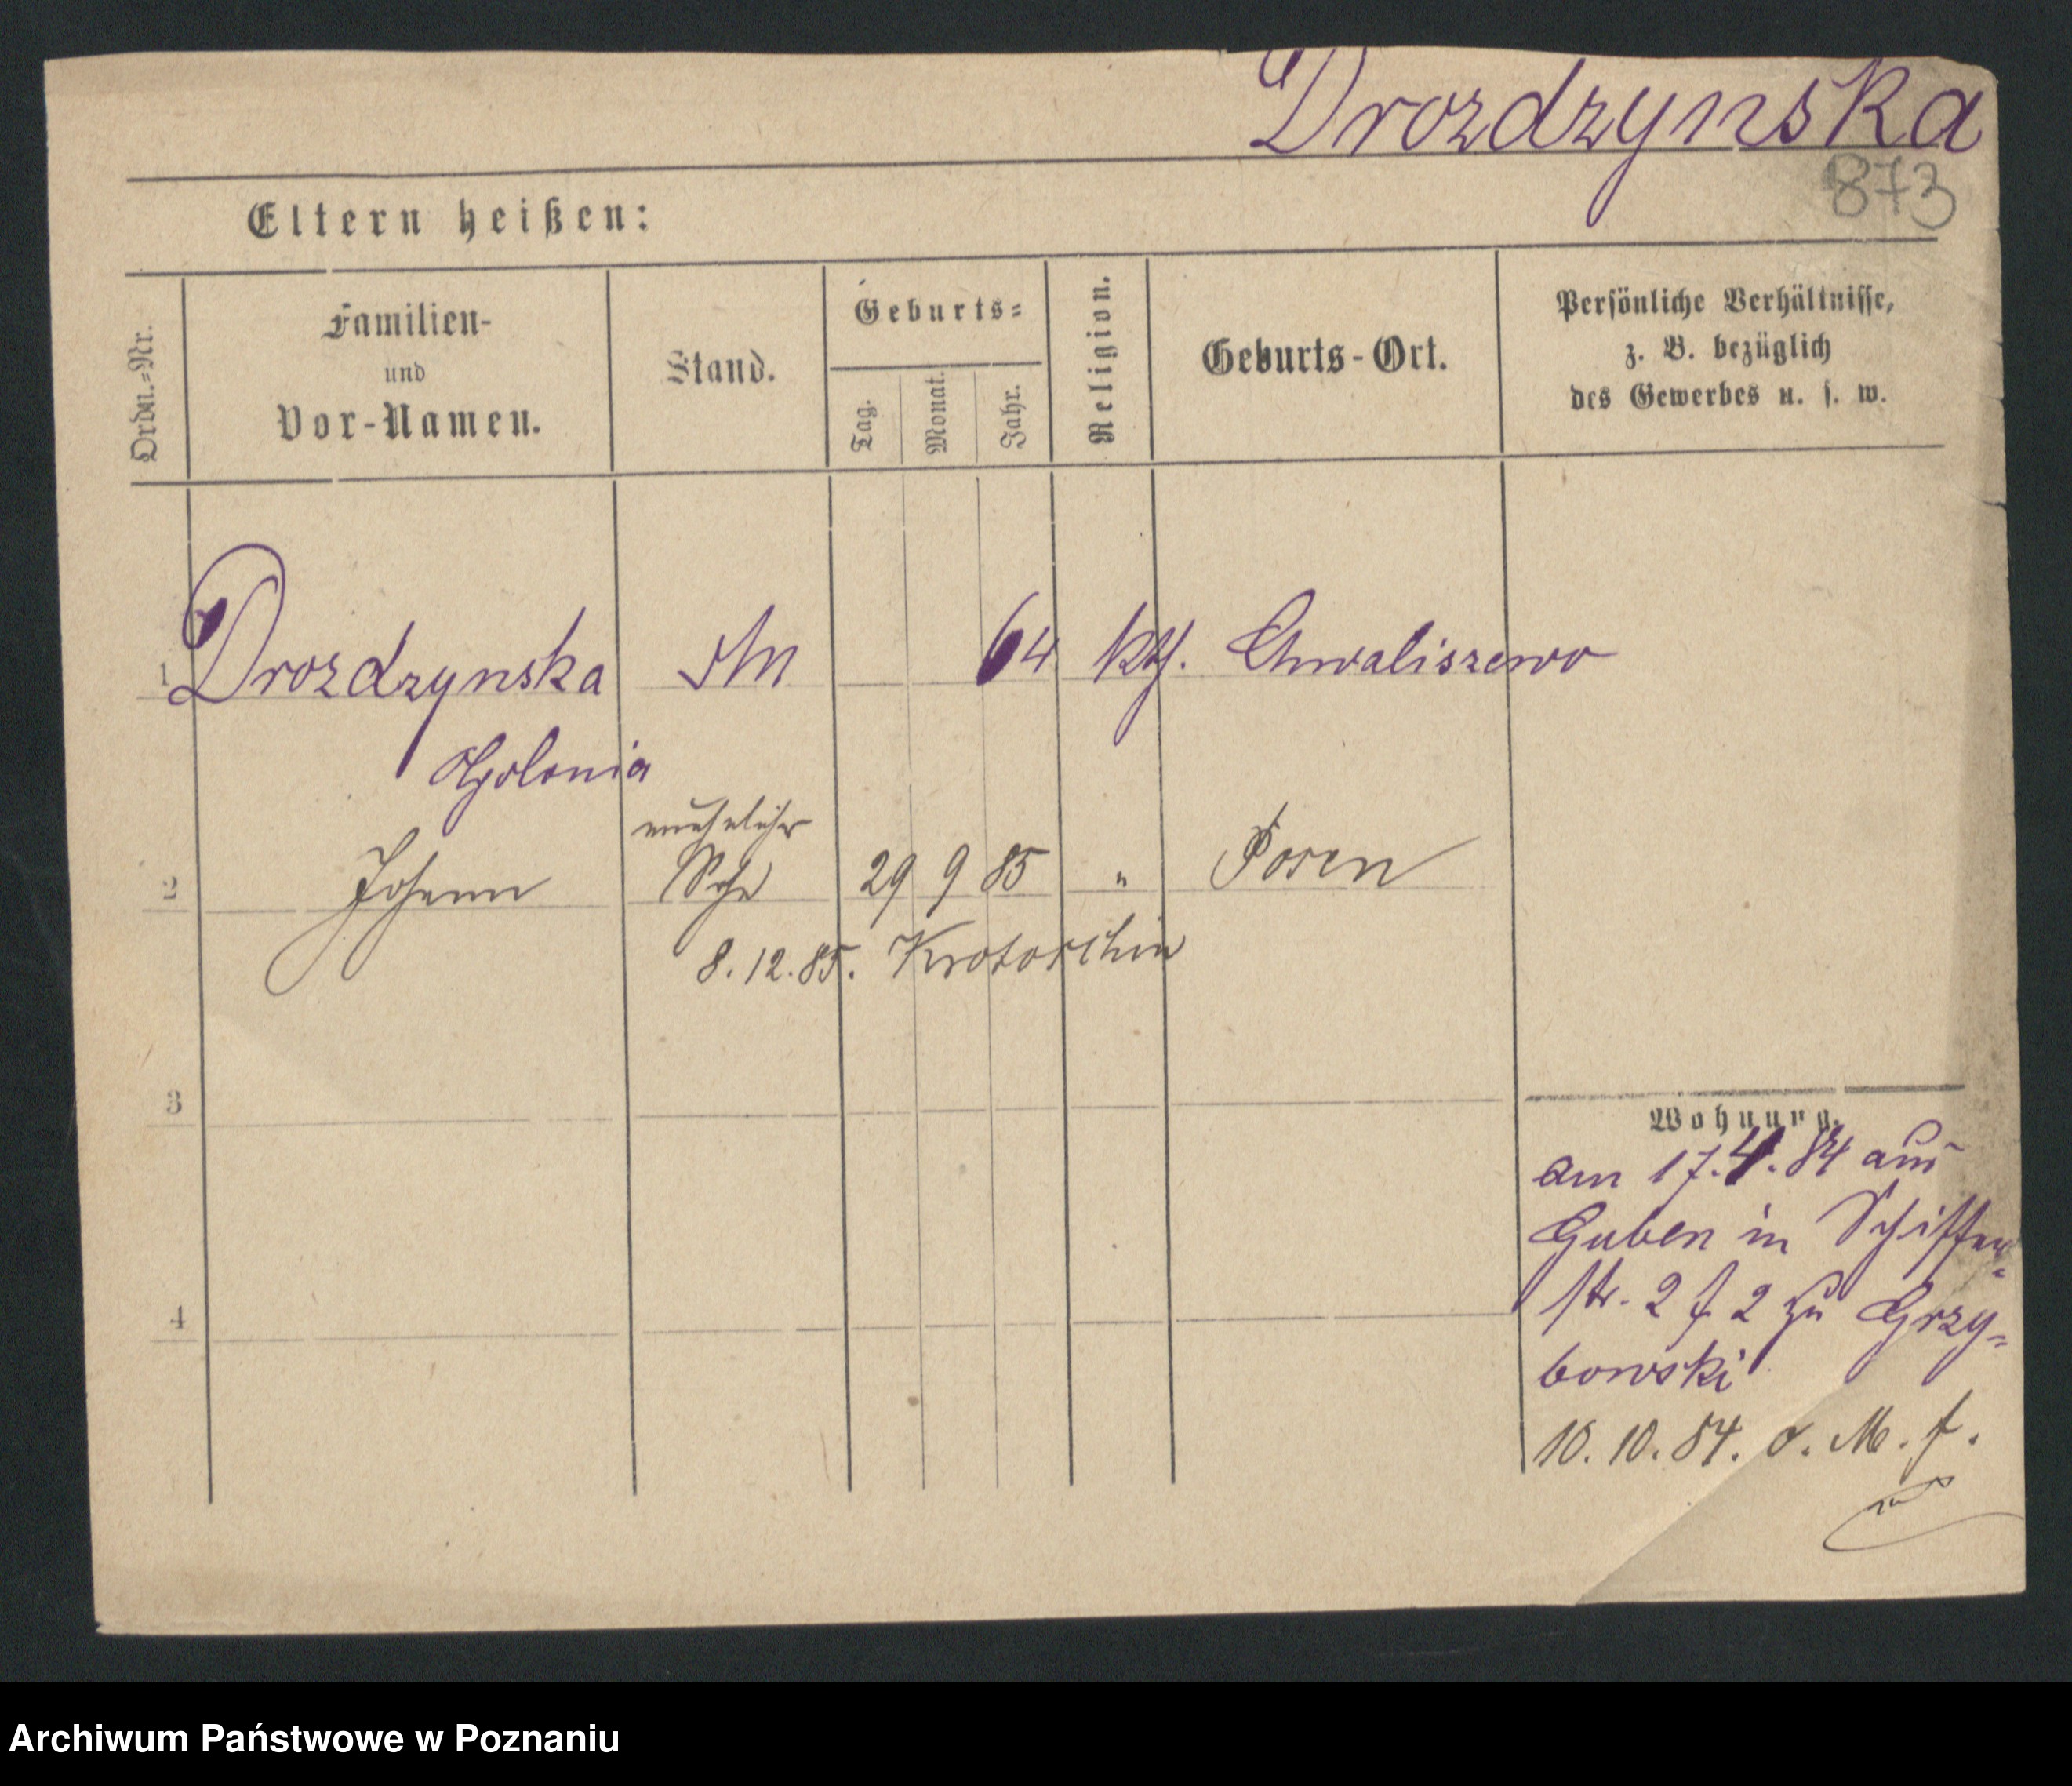 Drozdzynska
873
Eltern heißen:
Ordn.-Nr.
Familien-
und
Vor-Namen.
Stand.
Geburts-
Tag.
Monat.
Jahr.
Religion.
Geburts-Ort.
Persönliche Verhältnisse,
z. B. bezüglich
des Gewerbes u. s. w.
1 Drozdzynska 64 kth. Chwaliszewo
Apolonia
unehelicher
2 Johann Sohn 29 9 85 " Posen
8.12.85. Krotoschin
3
4
Wohnung.
am 17.4.84 aus
Guben in Schiffer-
str. 2 f 2 zu Grzy-
bowski
10.10.84. o. M. f.
Archiwum Państwowe w Poznaniu